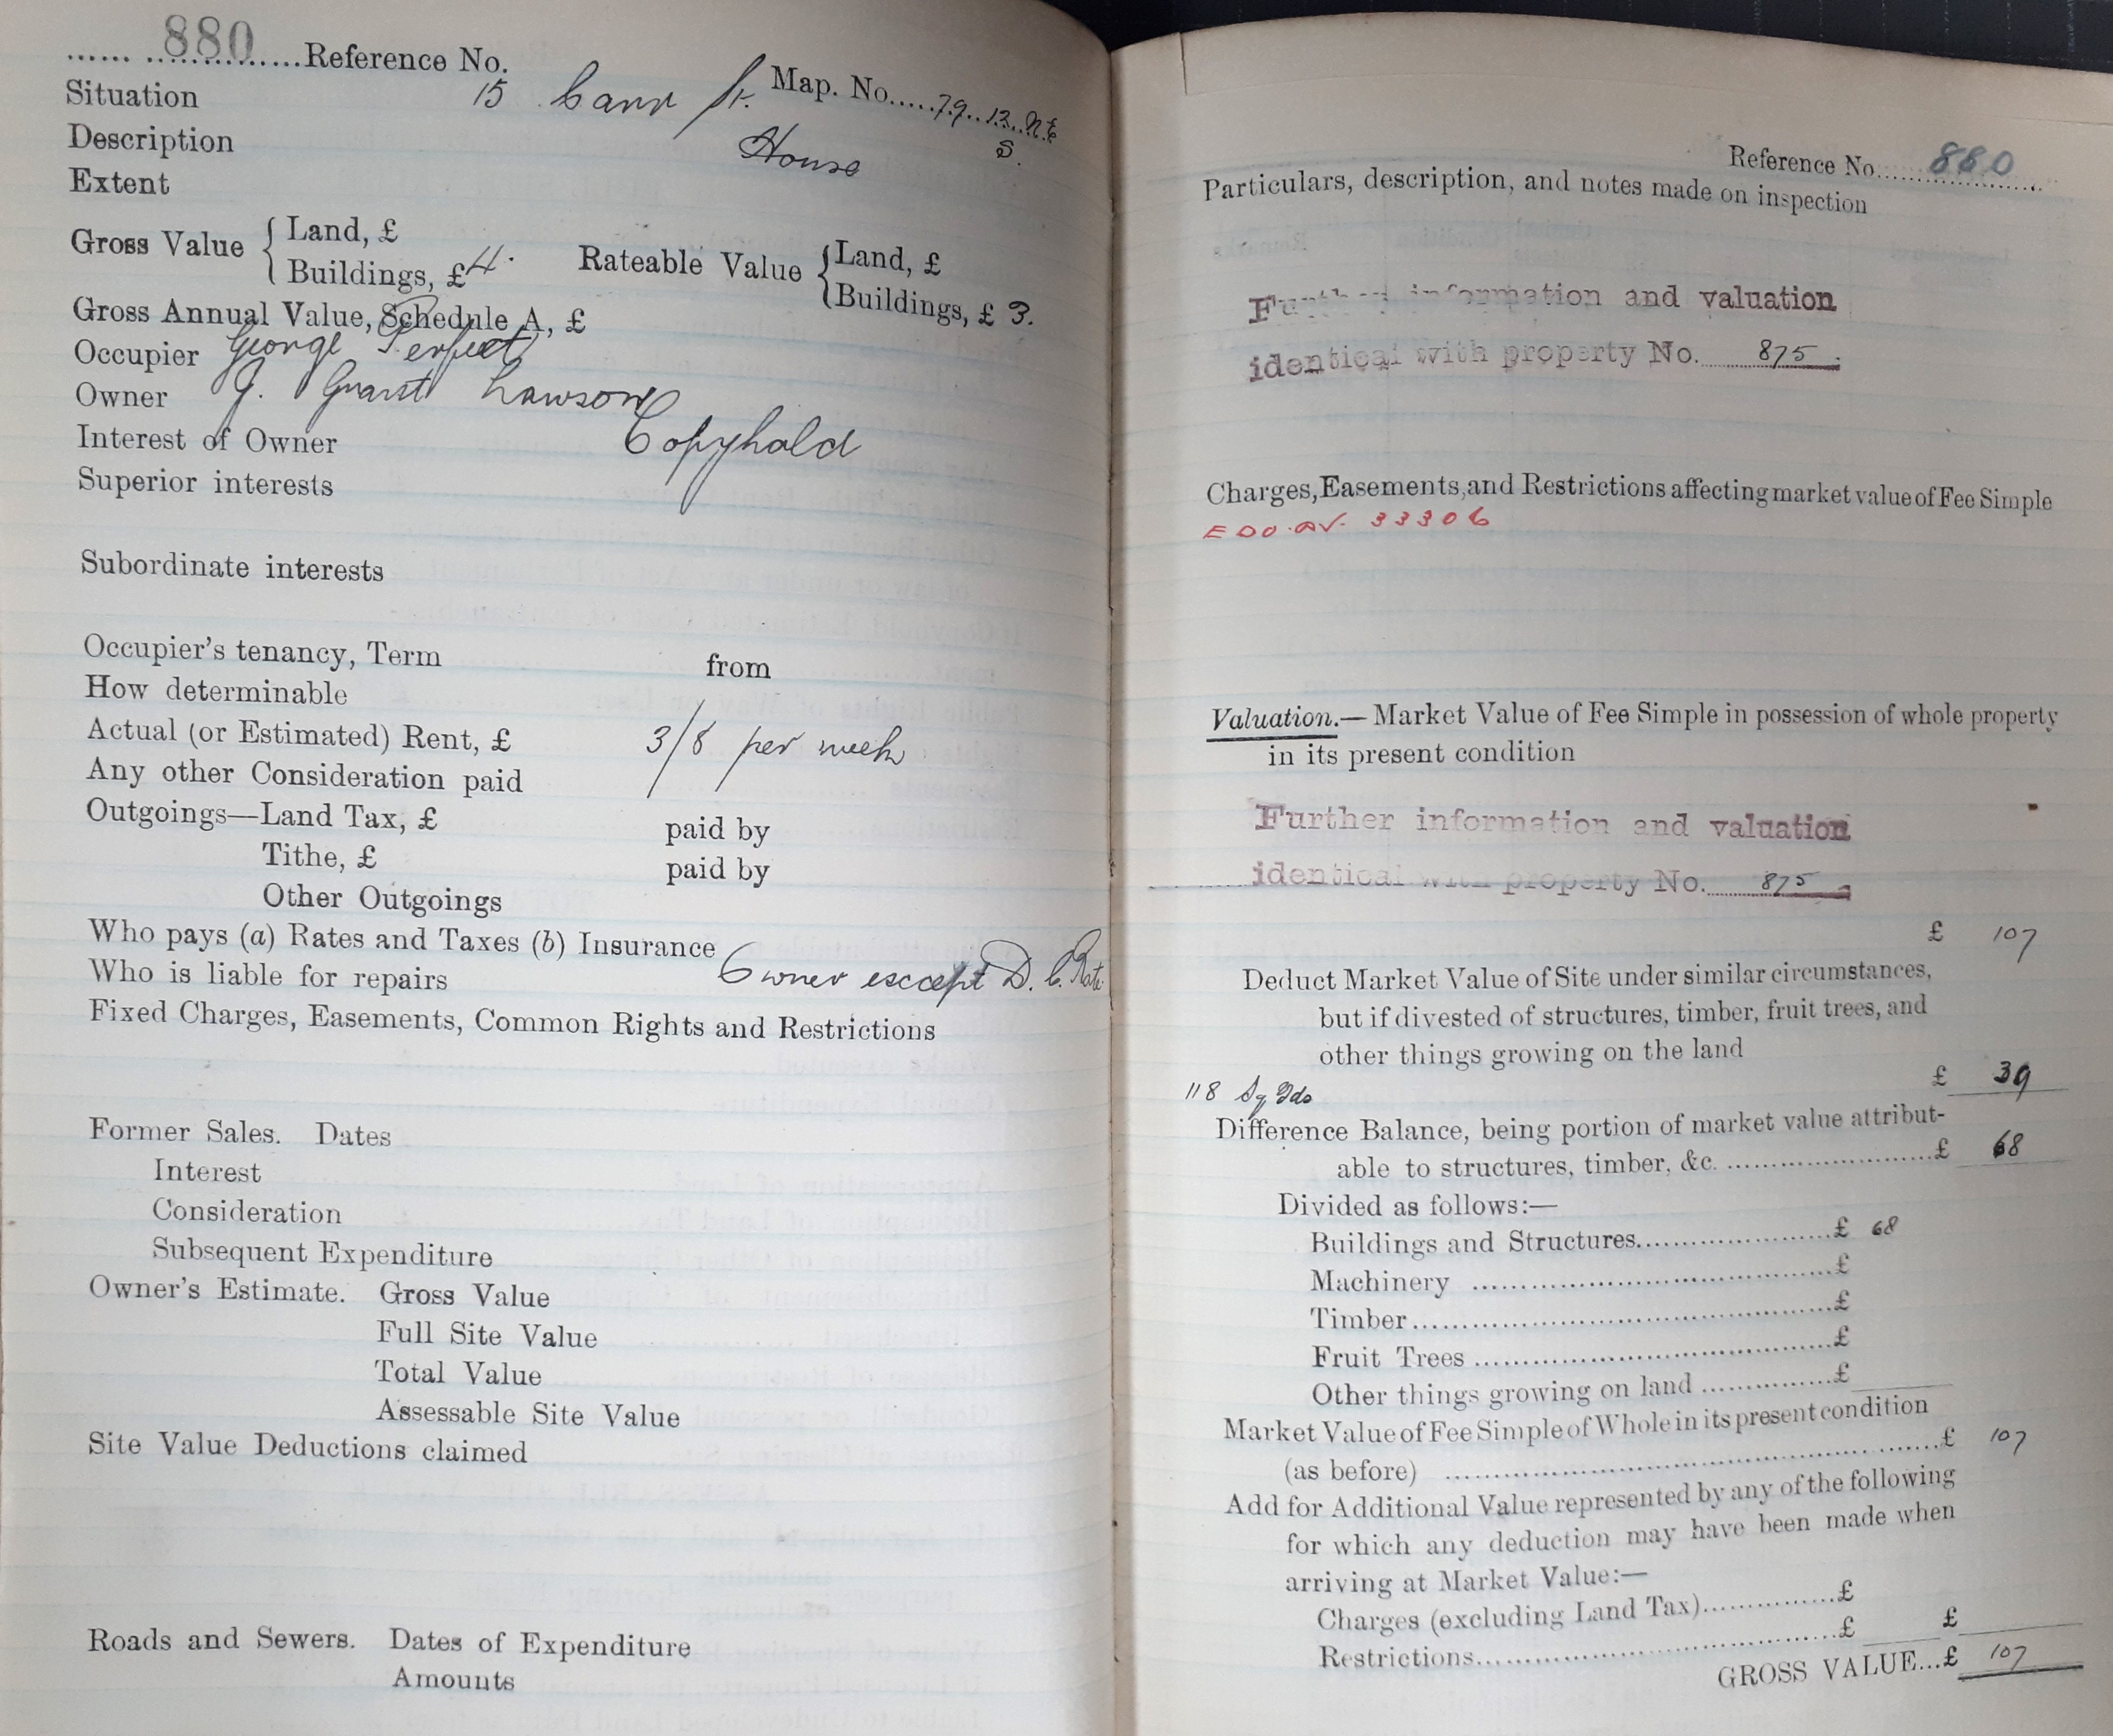 880
...... ...............Reference No.
Map. No.....79..13..NE
S.
Situation 15 Carr St.
Description House
Extent
Gross Value { Land, £
Buildings, £ 4.
Rateable Value { Land, £
Buildings, £ 3.
Gross Annual Value, Schedule A, £
Occupier George Perfect
Owner J. Grant Lawson
Interest of Owner Copyhold
Superior interests
Subordinate interests
Occupier's tenancy, Term from
How determinable
Actual (or Estimated) Rent, £ 3/8 per week
Any other Consideration paid
Outgoings—Land Tax, £ paid by
Tithe, £ paid by
Other Outgoings
Who pays (a) Rates and Taxes (b) Insurance
Who is liable for repairs Owner except D. C. Rate
Fixed Charges, Easements, Common Rights and Restrictions
Former Sales. Dates
Interest
Consideration
Subsequent Expenditure
Owner's Estimate. Gross Value
Full Site Value
Total Value
Assessable Site Value
Site Value Deductions claimed
Roads and Sewers. Dates of Expenditure
Amounts
Reference No. 880
Particulars, description, and notes made on inspection
Further information and valuation
identical with property No. 875.
Charges, Easements, and Restrictions affecting market value of Fee Simple
33306
Valuation.— Market Value of Fee Simple in possession of whole property
in its present condition
Further information and valuation
identical with property No. 875
£ 107
Deduct Market Value of Site under similar circumstances,
but if divested of structures, timber, fruit trees, and
other things growing on the land
£ 39
118 Sq Yds
Difference Balance, being portion of market value attribut-
able to structures, timber, &c. ........................£ 68
Divided as follows:—
Buildings and Structures......................£ 68
Machinery ......................................£
Timber..........................................£
Fruit Trees ....................................£
Other things growing on land ...............£
Market Value of Fee Simple of Whole in its present condition
(as before) ..................................................£ 107
Add for Additional Value represented by any of the following
for which any deduction may have been made when
arriving at Market Value:—
Charges (excluding Land Tax)...............£
Restrictions....................................£ £
GROSS VALUE...£ 107